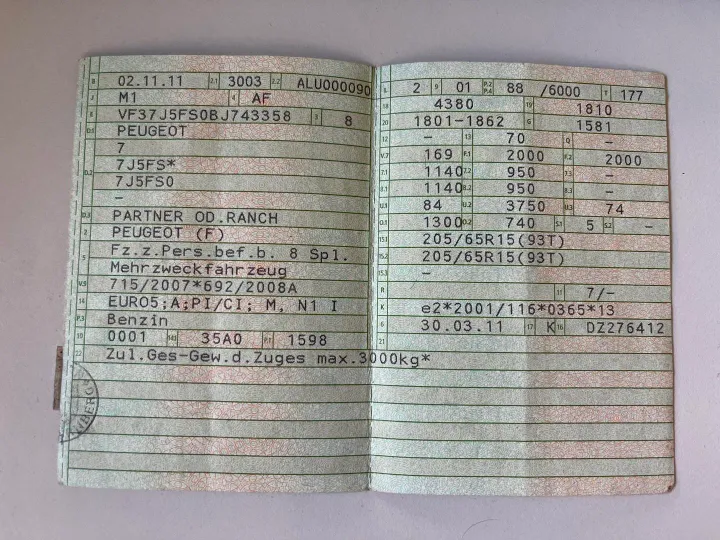 B 02.11.11 2.1 3003 2.2 ALU000090
J M1 4 AF
E VF37J5FS0BJ743358 3 8
D.1 PEUGEOT
7
D.2 7J5FS*
7J5FS0
–
D.3 PARTNER OD.RANCH
2 PEUGEOT (F)
5 Fz.z.Pers.bef.b. 8 Spl.
Mehrzweckfahrzeug
V.9 715/2007*692/2008A
14 EURO5;A;PI/CI; M, N1 I
P.3 Benzin
10 0001 14.1 35A0 P.1 1598
22 Zul.Ges-Gew.d.Zuges max.3000kg*
L 2 9 01 P.2 P.4 88 /6000 T 177
18 4380 19 1810
20 1801-1862 G 1581
12 – 13 70 Q –
V.7 169 F.1 2000 F.2 2000
7.1 1140 7.2 950 7.3 –
8.1 1140 8.2 950 8.3 –
U.1 84 U.2 3750 U.3 74
O.1 1300 O.2 740 S.1 5 S.2 –
15.1 205/65R15(93T)
15.2 205/65R15(93T)
15.3 –
R 11 7/–
K e2*2001/116*0365*13
6 30.03.11 17 K 16 DZ276412
21